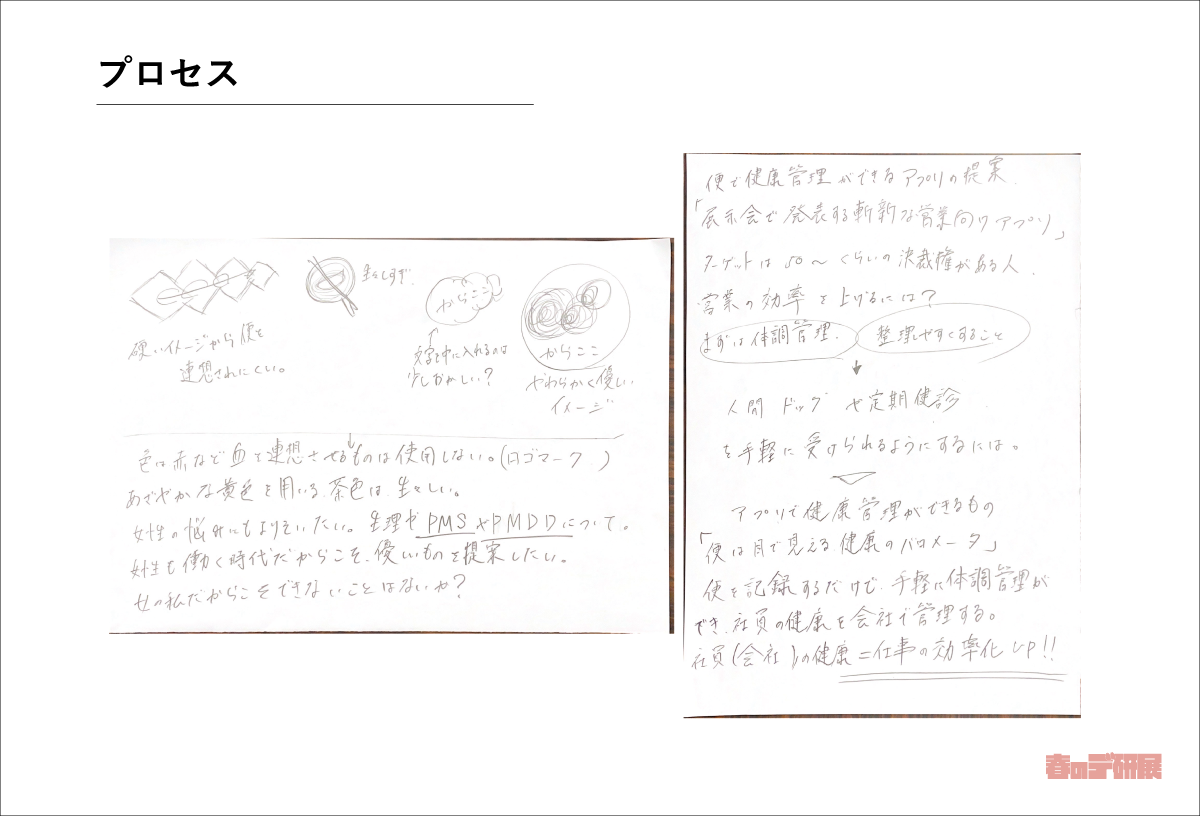 プロセス
生々しすぎ.
からここ
硬いイメージから便を
連想されにくい。
文字を中に入れるのは
少しおかしい?
からここ
やわらかく優しい
イメージ
色は赤など血を連想させるものは使用しない。(ロゴマーク )
あざやかな黄色を用いる.茶色は、生々しい。
女性の悩みにもよりそいたい。生理やPMSやPMDDについて。
女性も働く時代だからこそ、優しいものを提案したい。
女の私だからこそできないことはないか?
便で健康管理ができるアプリの提案.
「展示会で発表する斬新な営業向けアプリ」
ターゲットは50〜くらいの決裁権がある人.
営業の効率を上げるには?
まずは体調管理. 整理やすくすること
人間ドッグや定期健診
を手軽に受けられるようにするには。
アプリで健康管理ができるもの
「便は目で見える健康のバロメータ」
便を記録するだけで、手軽に体調管理が
でき、社員の健康を会社で管理する。
社員(会社)の健康=仕事の効率化UP!!
春のデ研展